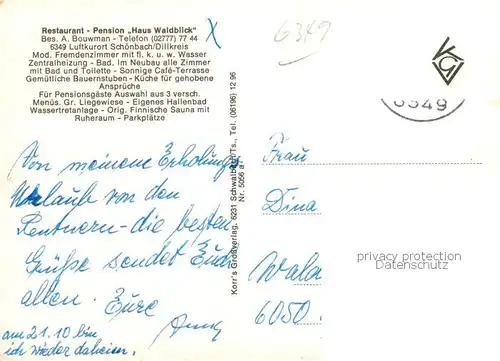 Restaurant - Pension „Haus Waldblick"
Bes. A. Bouwman - Telefon (02777) 77 44
6349 Luftkurort Schönbach/Dillkreis
Mod. Fremdenzimmer mit fl. k. u. w. Wasser
Zentralheizung - Bad. Im Neubau alle Zimmer
mit Bad und Toilette - Sonnige Café-Terrasse
Gemütliche Bauernstuben - Küche für gehobene
Ansprüche
Für Pensionsgäste Auswahl aus 3 versch.
Menüs. Gr. Liegewiese - Eigenes Hallenbad
Wassertretanlage - Orig. Finnische Sauna mit
Ruheraum - Parkplätze
Von meinem Erholungs
Urlaub von den
Rentnern - die besten
Grüße sendet Euch
allen. Eure
am 21.10 bin
ich wieder daheim.
Korr's Großverlag, 6231 Schwalbach/Ts., Tel. (06196) 12 96
Nr. 5056 a
6349
KGV
6349
Frau
Dina
Wald
6050
privacy protection
Datenschutz